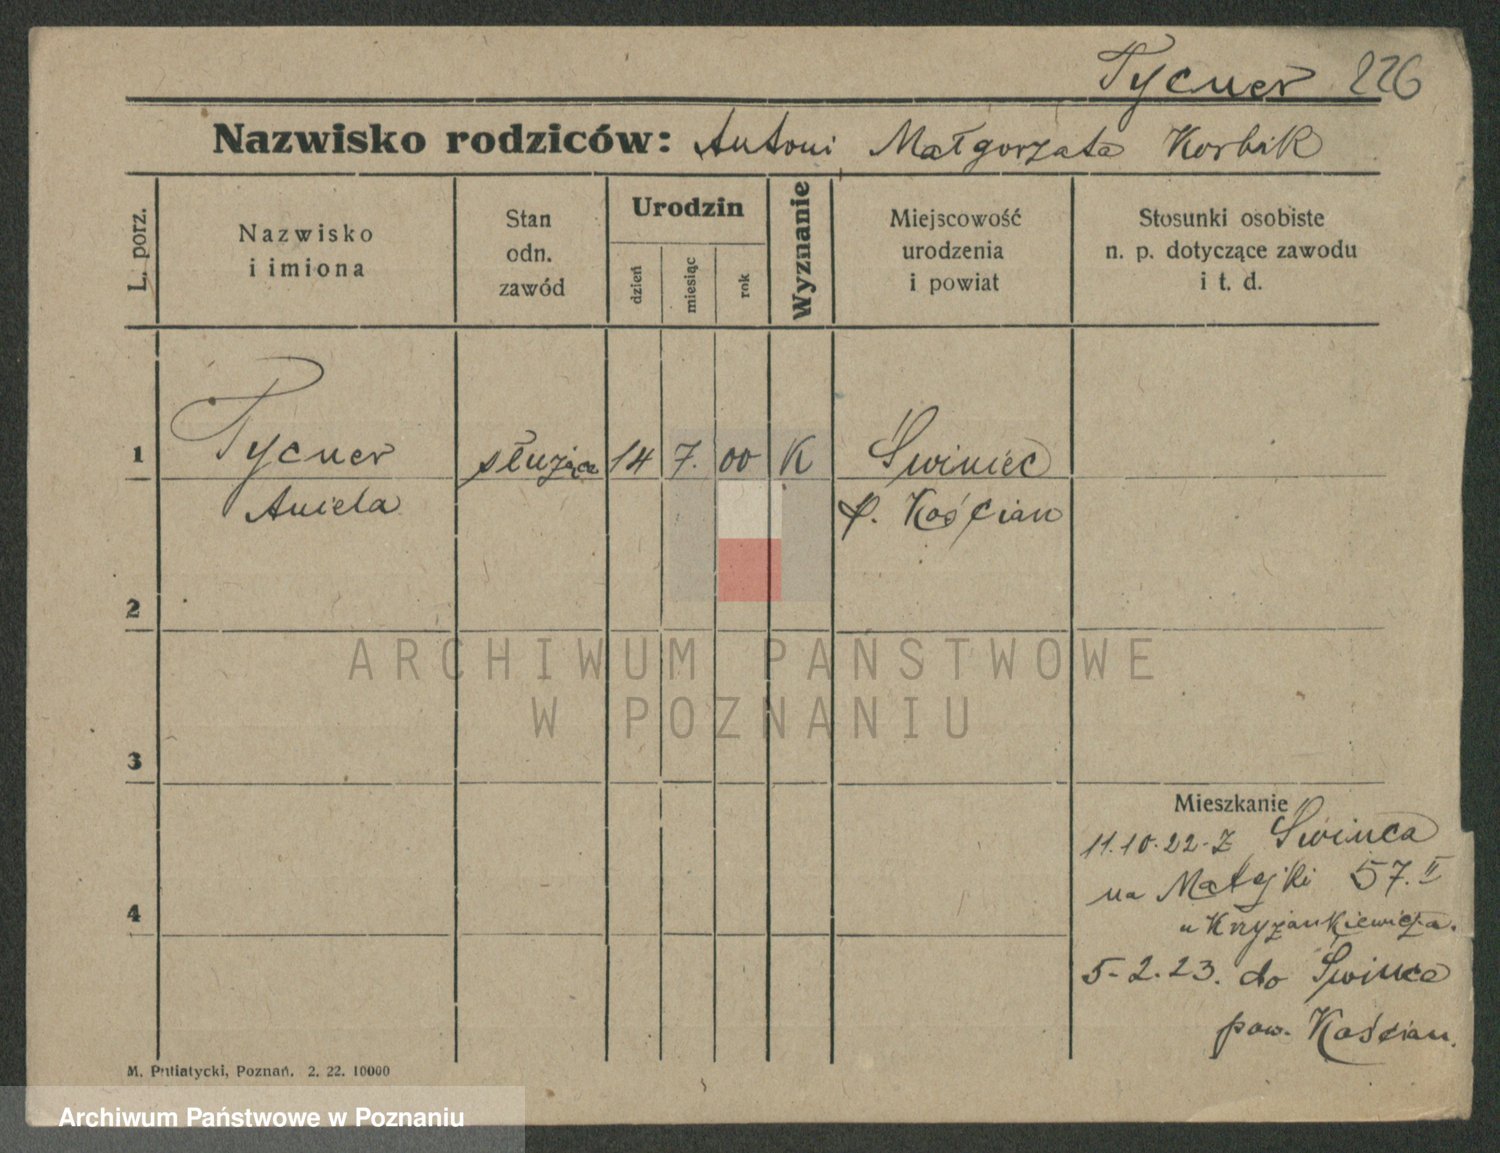 Tycner 226
Nazwisko rodziców: Antoni Małgorzata Korbik
L. porz.
Nazwisko
i imiona
Stan
odn.
zawód
Urodzin
dzień
miesiąc
rok
Wyznanie
Miejscowość
urodzenia
i powiat
Stosunki osobiste
n. p. dotyczące zawodu
i t. d.
1 Tycner służąca 14 7. 00 K Świniec
Aniela p. Kościan
2
3
4
Mieszkanie
11.10.22 - z Świńca
na Matejki 57. II
u Krzyżankiewicza.
5-2.23. do Świńca
pow. Kościan.
M. Putiatycki, Poznań. 2. 22. 10000
ARCHIWUM PAŃSTWOWE
W POZNANIU
Archiwum Państwowe w Poznaniu